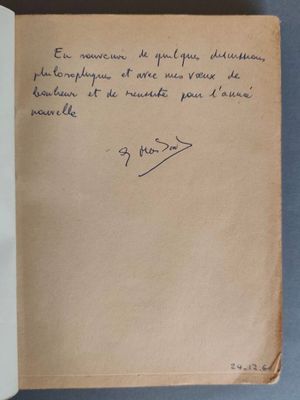 En souvenir de quelques discussions
philosophiques et avec mes vœux de
bonheur et de réussite pour l'année
nouvelle
24.12.6